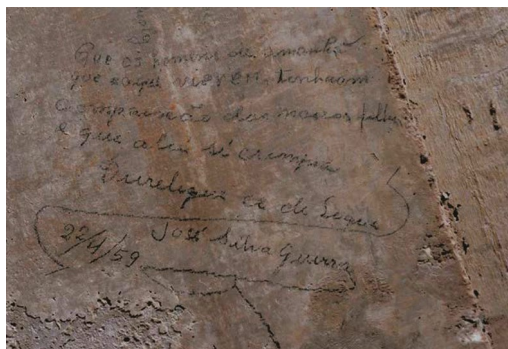 Que os omens de amanhã
que aqui vierem, tenham
Compaixão dos nosos filhos
e que a lei si crumpra
José Silva Guerra
22/4/59